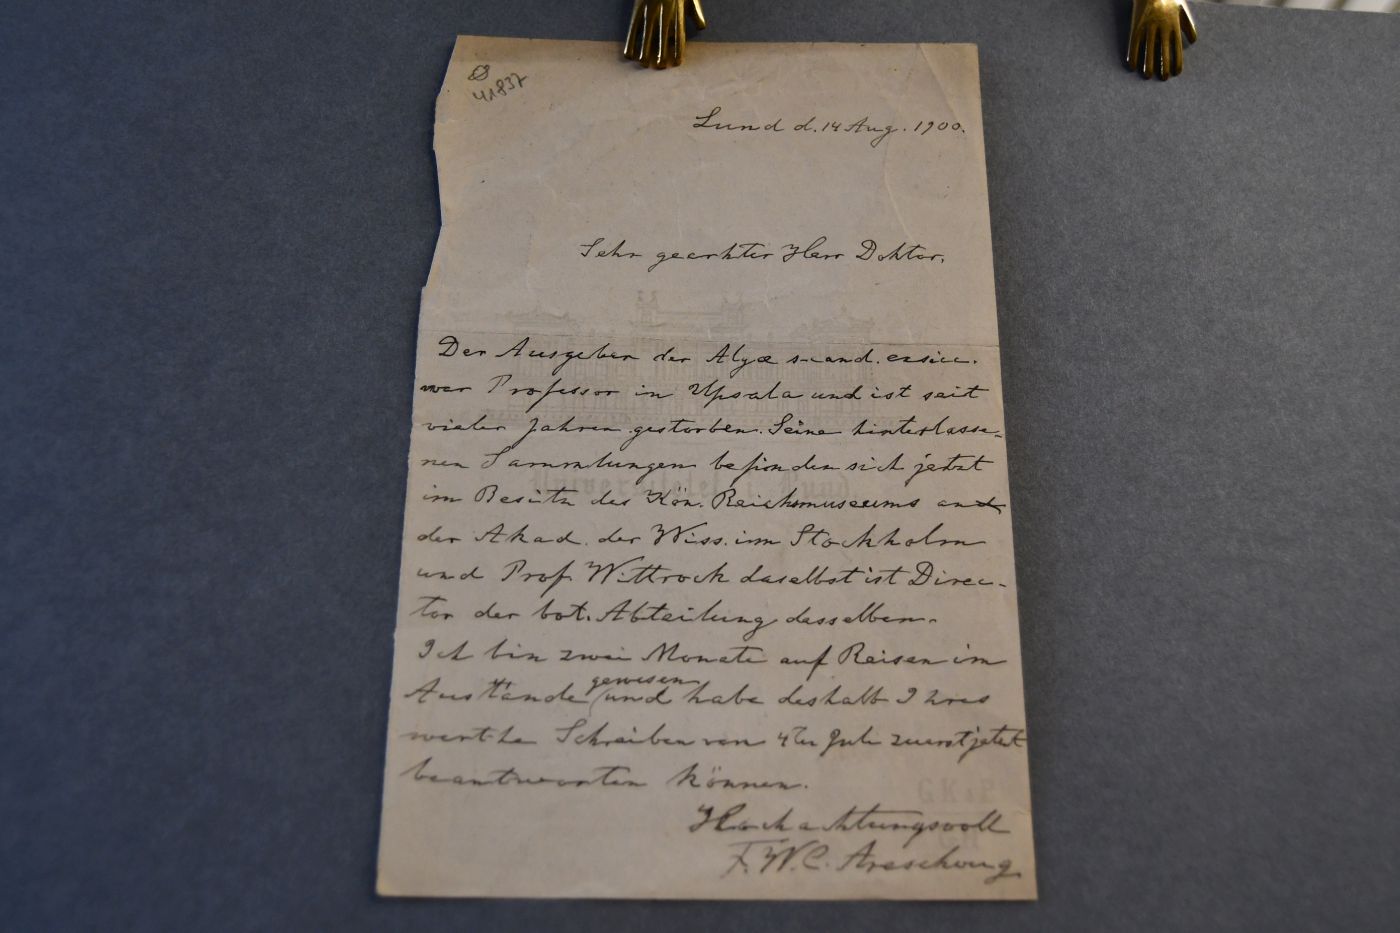 41837
Lund d. 14 Aug. 1900.
Sehr geerhter Herr Doktor.
Der Ausgeber der Algæ scand. exsicc.
war Professor in Upsala und ist seit
vieler Jahren gestorben. Seine hinterlasse-
nen Sammlungen befinden sich jetzt
im Besitz des Kön. Reichsmuseums an
der Akad. der Wiss. im Stockholm
und Prof. Wittrock daselbst ist Direc-
tor der bot. Abteilung desselben.
Ich bin zwei Monate auf Reisen im
Auslände gewesen und habe deshalb Ihres
werthe Schreiben von 4ten Juli zuerst jetzt
beantworten können.
Hochachtungsvoll
F. W. C. Areschoug